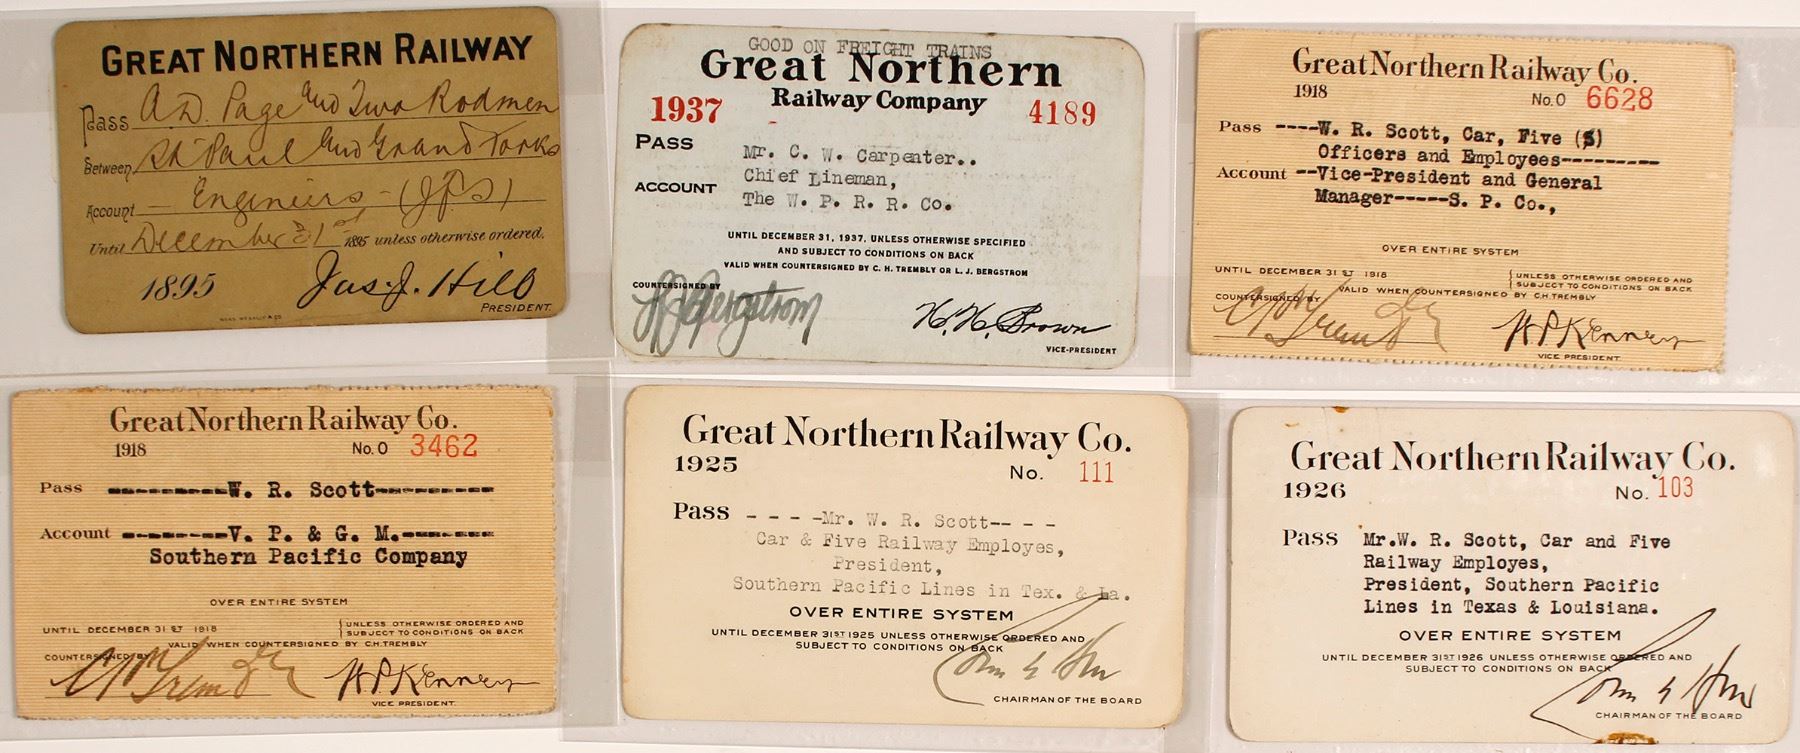 GREAT NORTHERN RAILWAY
Pass A. D. Page and Two Rodmen
Between St Paul and Grand Forks
Account - Engineers - (JPS)
Until December 31st 1895 unless otherwise ordered.
1895 Jas. J. Hill
PRESIDENT.
GOOD ON FREIGHT TRAINS
Great Northern
Railway Company
1937 4189
PASS Mr. C. W. Carpenter..
ACCOUNT Chief Lineman,
The W. P. R. R. Co.
UNTIL DECEMBER 31, 1937, UNLESS OTHERWISE SPECIFIED
AND SUBJECT TO CONDITIONS ON BACK
VALID WHEN COUNTERSIGNED BY C. H. TREMBLY OR L. J. BERGSTROM
COUNTERSIGNED BY
L J Bergstrom H. H. Brown
VICE-PRESIDENT
Great Northern Railway Co.
1918 No. O 6628
Pass ----W. R. Scott, Car, Five (5)
Officers and Employees---------
Account --Vice-President and General
Manager-----S. P. Co.,
OVER ENTIRE SYSTEM
UNTIL DECEMBER 31 ST 1918 { UNLESS OTHERWISE ORDERED AND
SUBJECT TO CONDITIONS ON BACK
VALID WHEN COUNTERSIGNED BY C.H. TREMBLY
COUNTERSIGNED BY
W P Kenney
VICE PRESIDENT.
Great Northern Railway Co.
1918 No. O 3462
Pass ----------W. R. Scott----------
Account ---------V. P. & G. M.--------
Southern Pacific Company
OVER ENTIRE SYSTEM
UNTIL DECEMBER 31 ST 1918 { UNLESS OTHERWISE ORDERED AND
SUBJECT TO CONDITIONS ON BACK
VALID WHEN COUNTERSIGNED BY C.H. TREMBLY
COUNTERSIGNED BY
W P Kenney
VICE PRESIDENT.
Great Northern Railway Co.
1925 No. 111
Pass - - - -Mr. W. R. Scott-- - -
Car & Five Railway Employes,
President,
Southern Pacific Lines in Tex. & La.
OVER ENTIRE SYSTEM
UNTIL DECEMBER 31ST 1925 UNLESS OTHERWISE ORDERED AND
SUBJECT TO CONDITIONS ON BACK
CHAIRMAN OF THE BOARD
Great Northern Railway Co.
1926 No. 103
Pass Mr.W. R. Scott, Car and Five
Railway Employes,
President, Southern Pacific
Lines in Texas & Louisiana.
OVER ENTIRE SYSTEM
UNTIL DECEMBER 31ST 1926 UNLESS OTHERWISE ORDERED AND
SUBJECT TO CONDITIONS ON BACK
CHAIRMAN OF THE BOARD